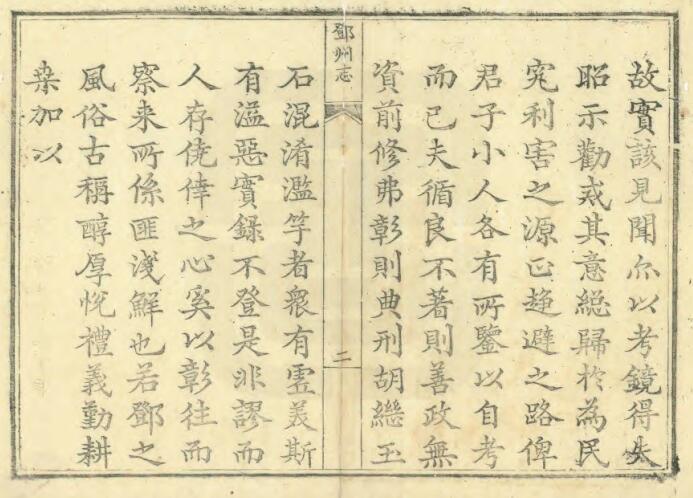 故實該見聞尒以考鏡得失
昭示勸戒其意緫歸於為民
究利害之源正趍避之路俾
君子小人各有所鑒以自考
而已夫循良不著則善政無
資前修弗彰則典刑胡繼玉
鄧州志
二
石混淆濫竽者衆有虛美斯
有溢惡實録不登是非謬而
人存僥倖之心奚以彰往而
察来所係匪淺鮮也若鄧之
風俗古稱醇厚悅禮義勤耕
桒加以